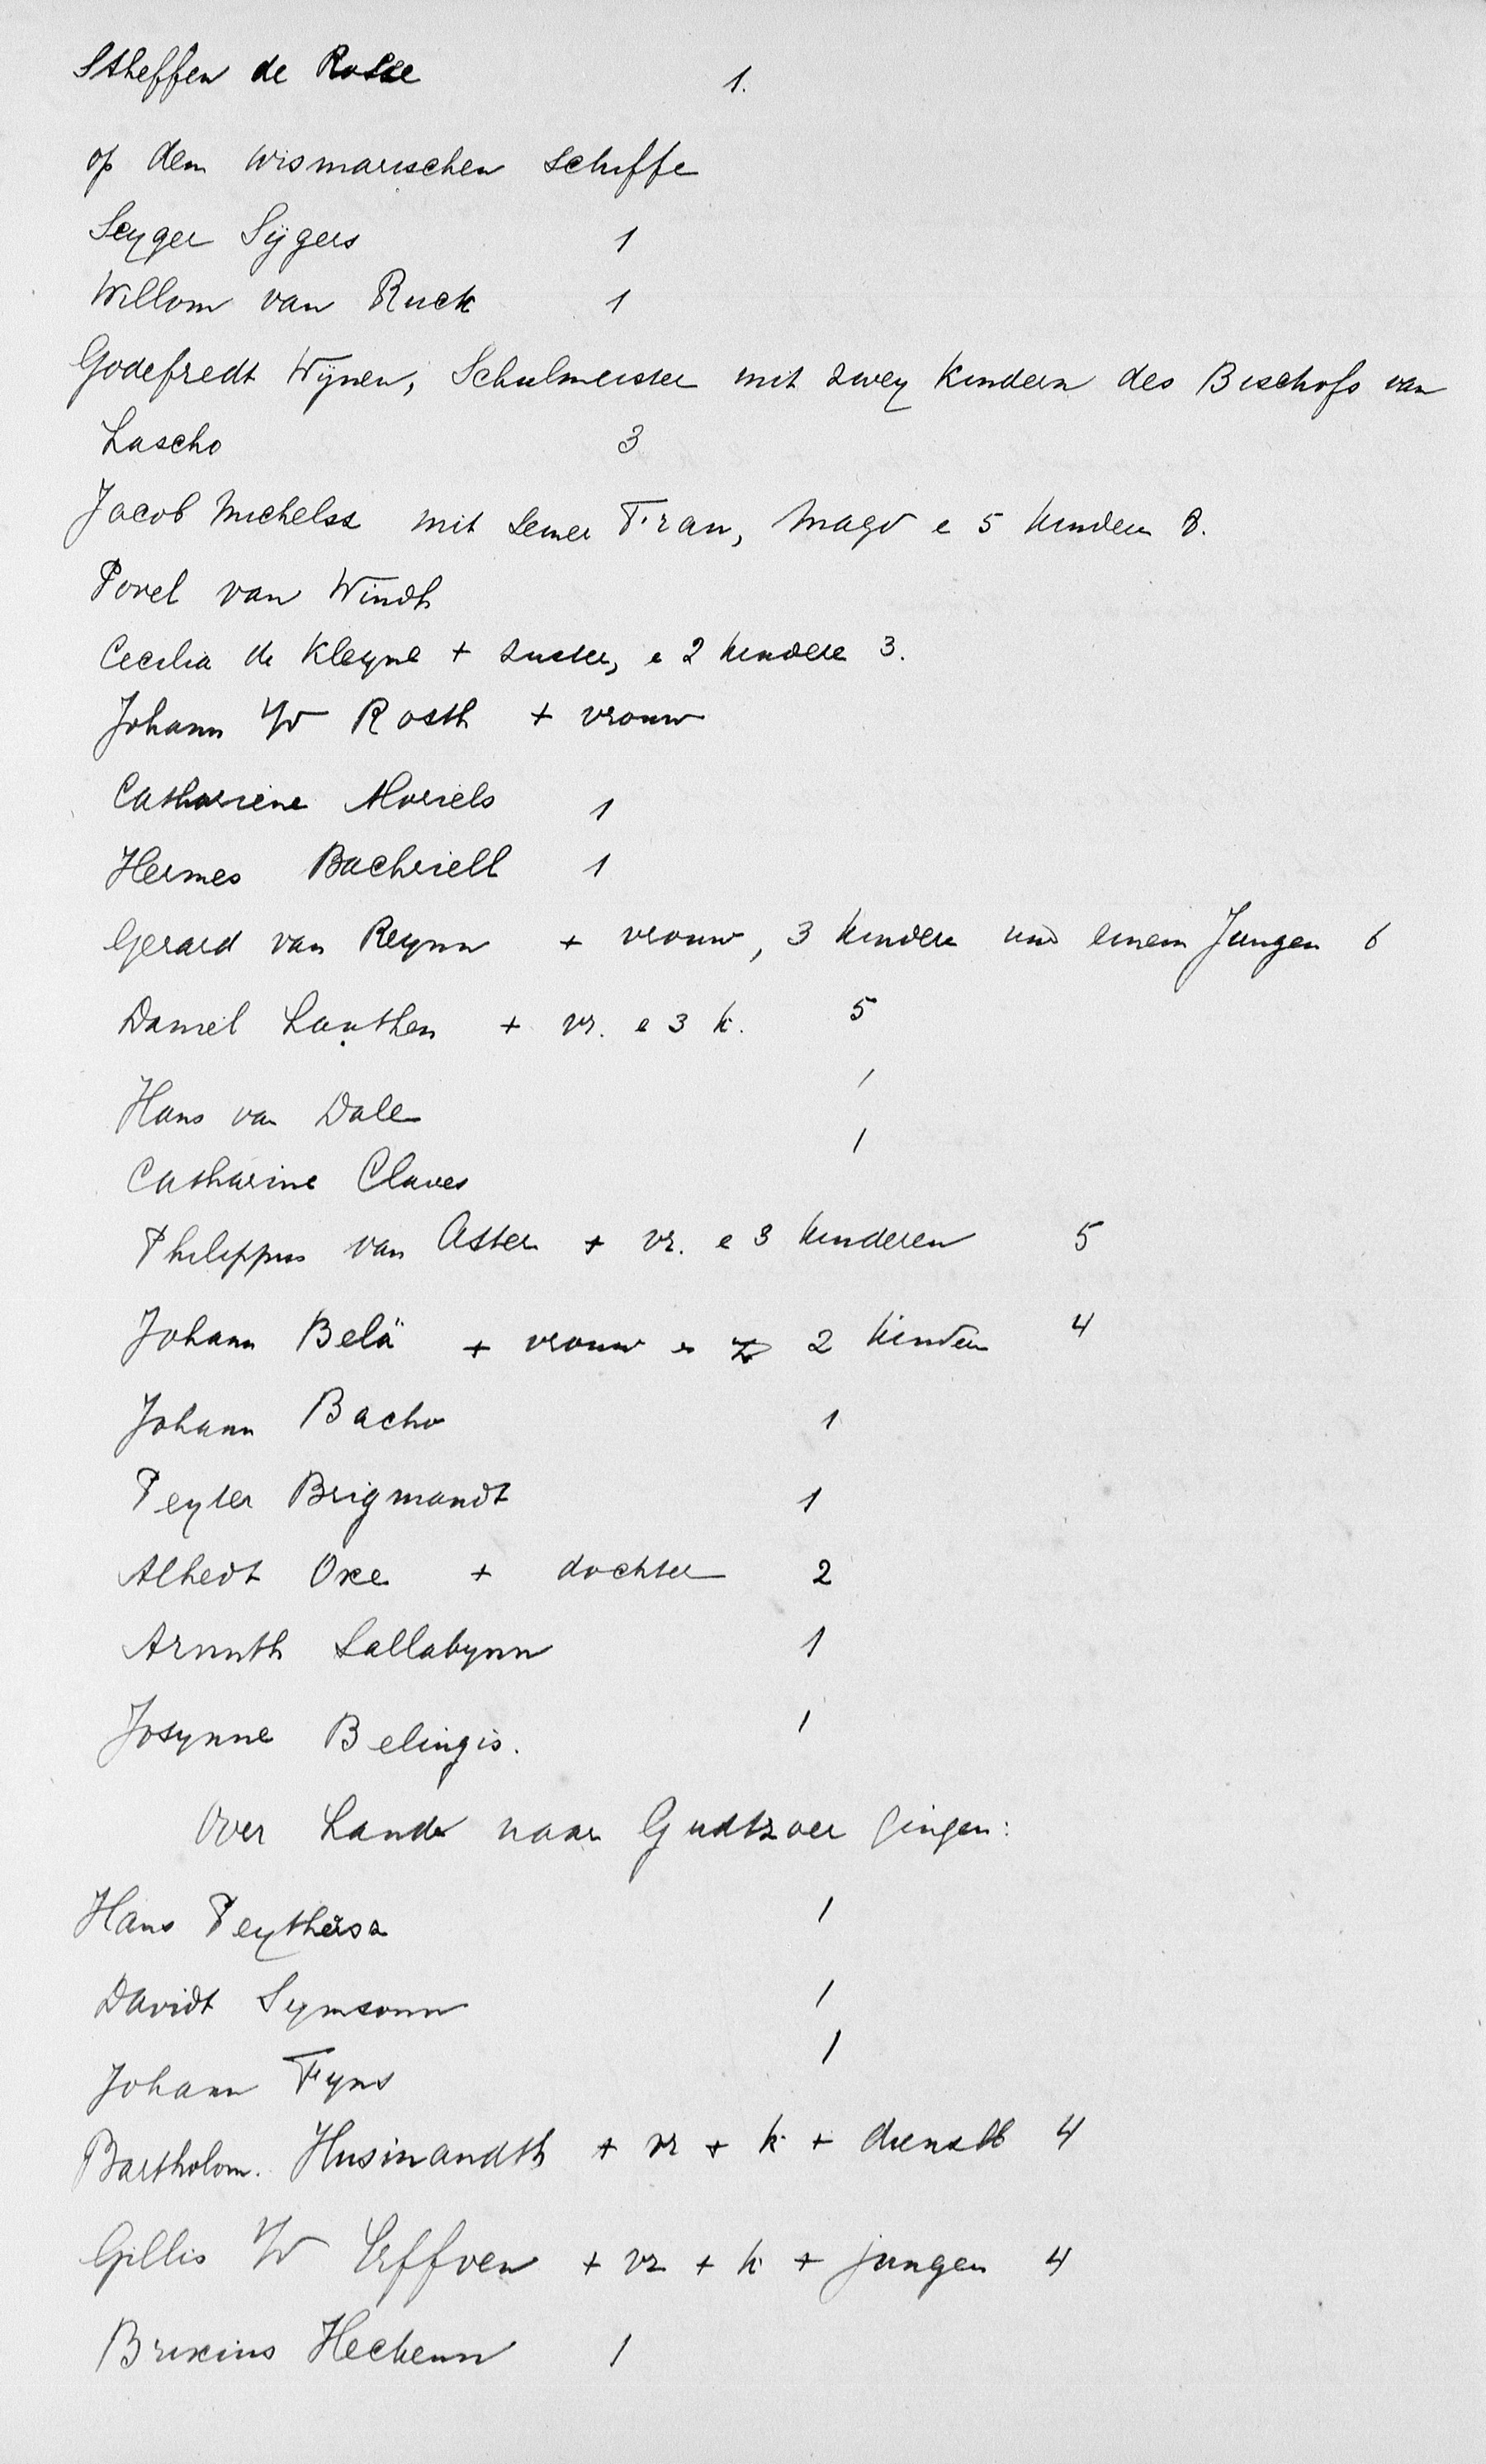 Stheffen de Rosse 1.
op dem wismarischen schiffe
Seyger Sÿgers 1
Willom van Ruck 1
Godefredt Wÿnen, Schulmeister mit zwey Kindern des Bischofs van
Lascho 3
Jacob Michelss mit seiner Frau, Magd e 5 kindern 8.
Povel van Windh
Cecilia de Kleyne + zuster, e 2 kindere 3.
Johann v/d Rosth + vrouw
Catharine Moriels 1
Hermes Bachriell 1
Gerard van Reynn + vrouw, 3 kindern und einem Jungen 6
Daniel Lauthen + vr. e 3 k. 5
Hans van Dale 1
Catharine Claves 1
Philippus van Asten + vr. e 3 kinderen 5
Johann Belä + vrouw e 2 kindern 4
Johann Bacho 1
Peyter Brigmandt 1
Alhedt Oxe + dochter 2
Arnnth Lallabynn 1
Josynne Belingis. 1
Over Lande naar Gudtzoer gingen:
Hans Peythersz 1
Davidt Symsonn 1
Johann Fyns 1
Bartholom. Husinandth + vr + k + dienstb 4
Gillis v/d Erffven + vr + k + jungen 4
Brixius Heckenn 1